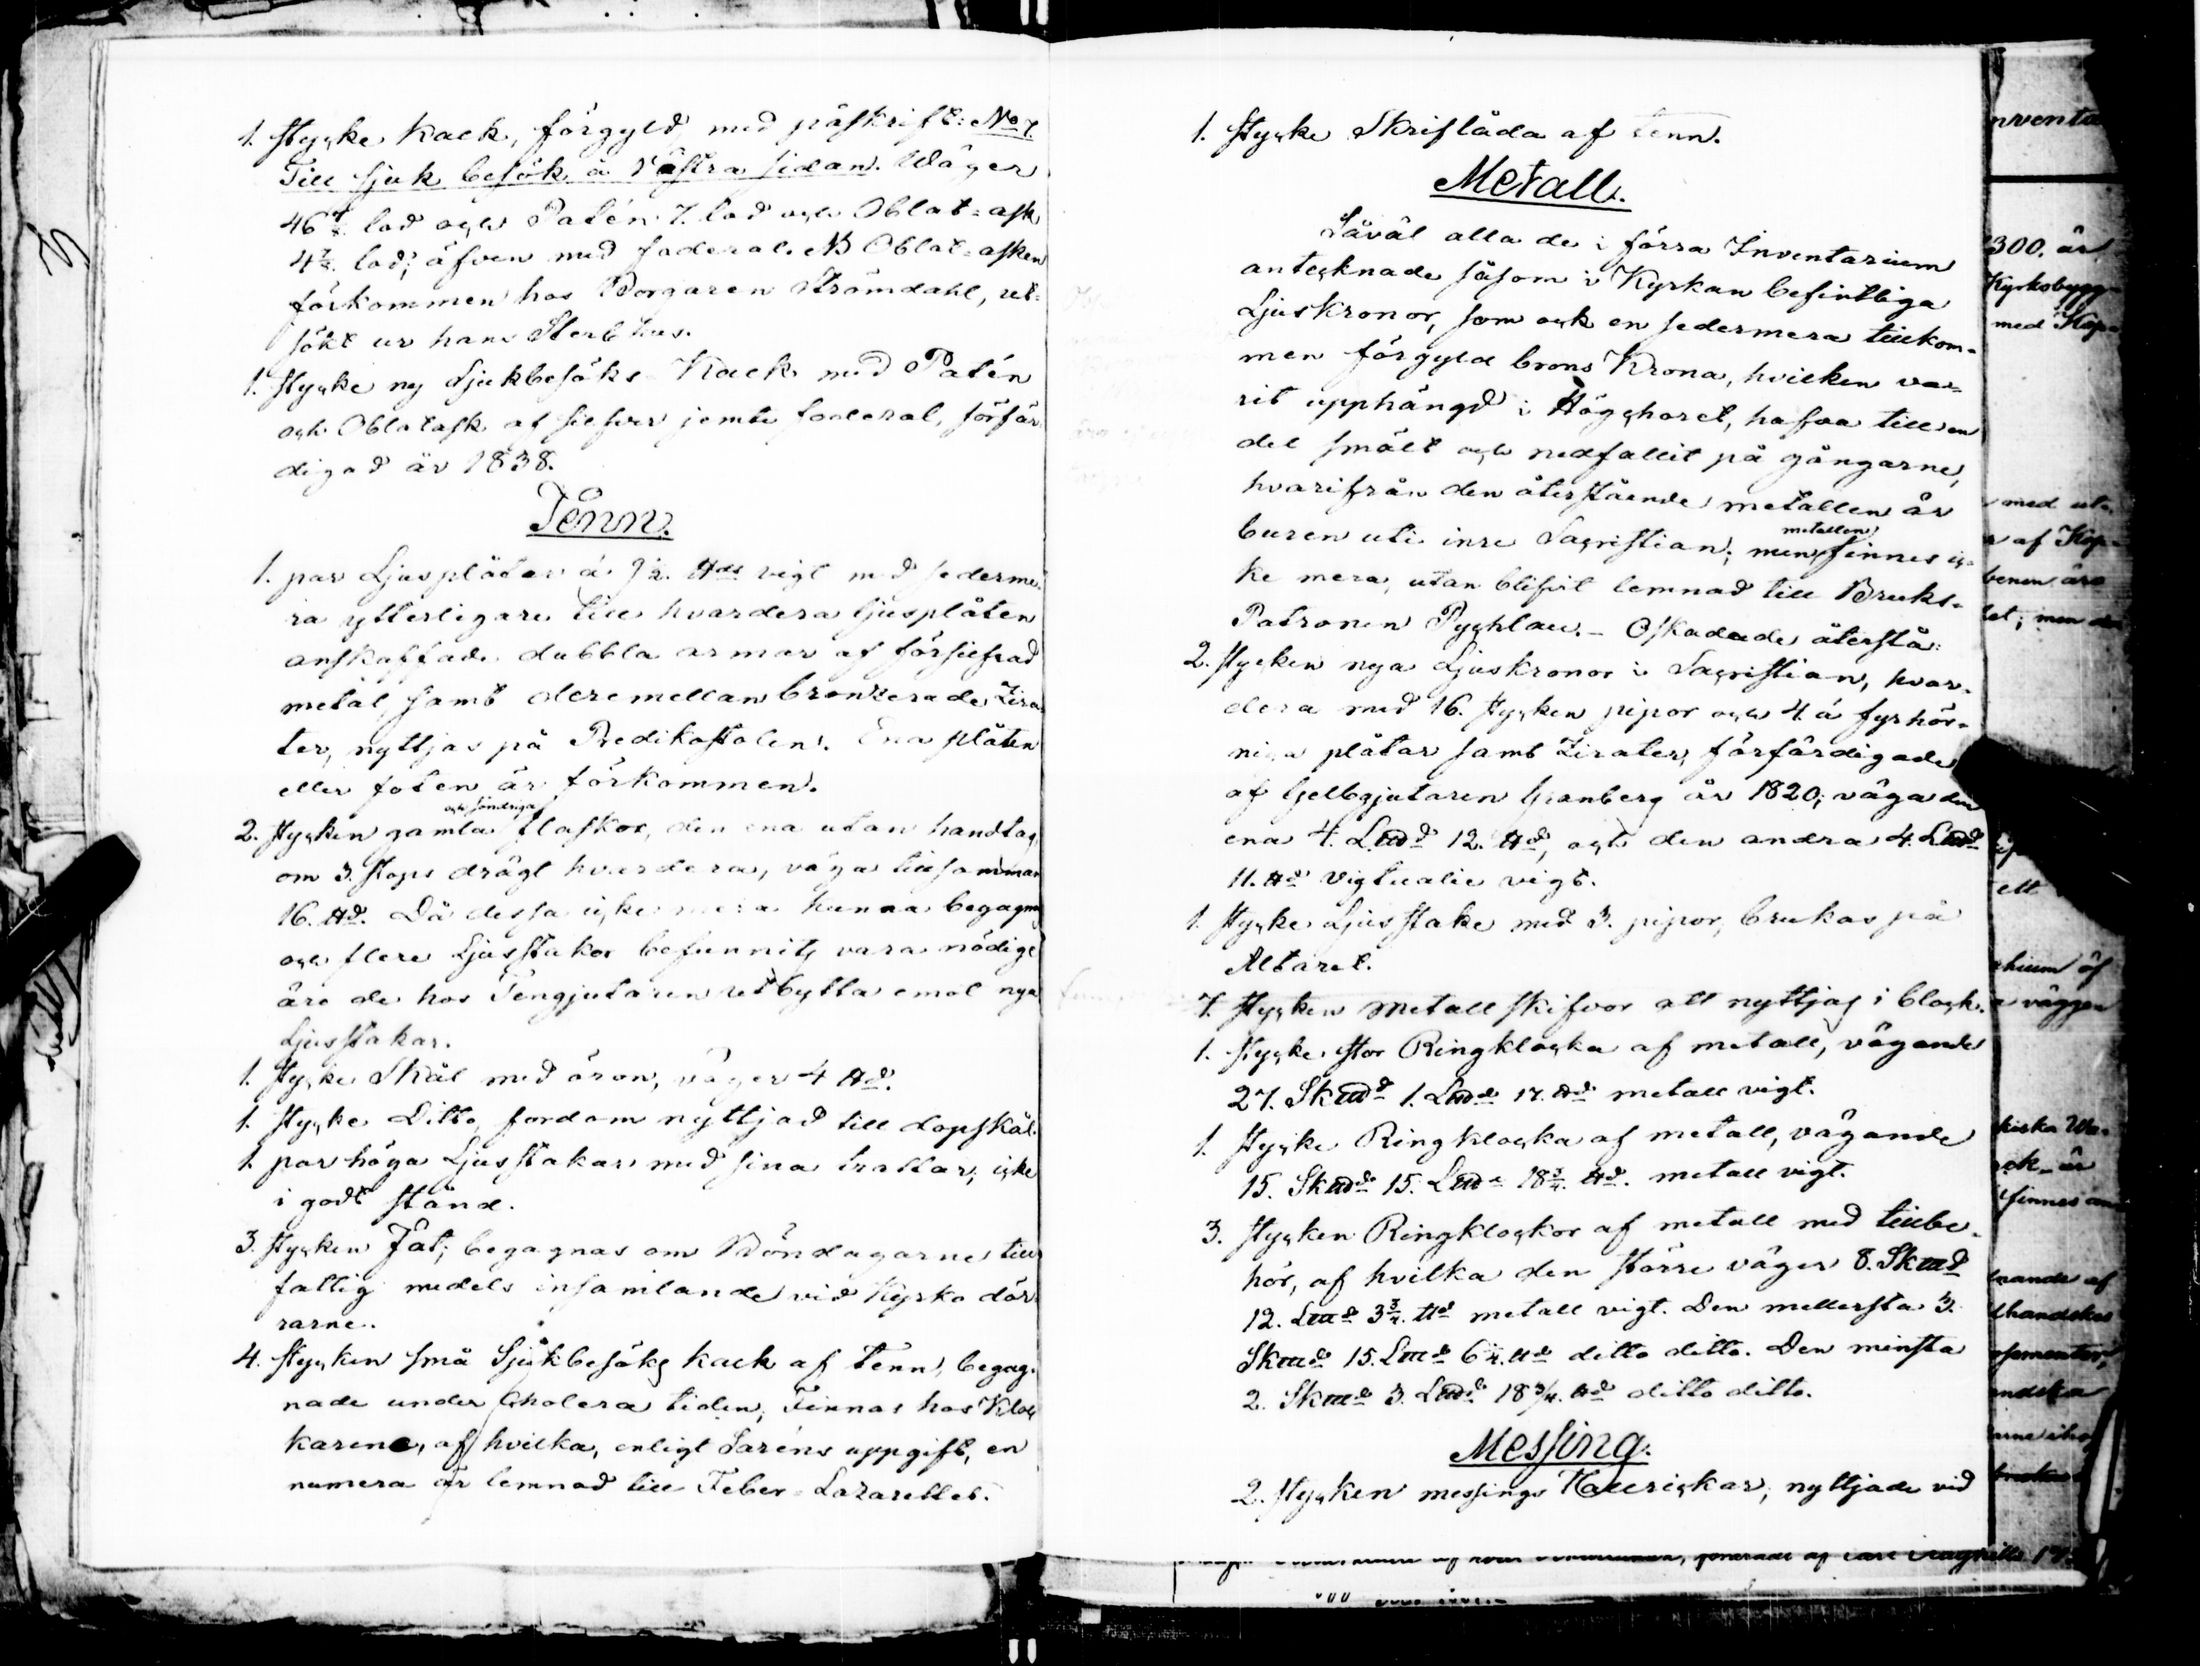 1. stycke Kalk, förgyld, med påskrift: No 7
Till sjuk besök å Västra sidan. Wäger
46 lod och Patén 7. lod och Oblat-ask
4 7/8 lod; äfven med foderal. NB Oblat-asken
förkommen hos Borgaren Strömdahl, ut-
sökt ur hans Sterbhus.
1. stycke ny Sjukbesöks Kalk med Patén
och Oblatask af silfver jemte foderal, förfär
digad år 1838.
Tenn.
1. par Ljusplåtar á 9 1/2 ℔ vigt med sederme-
ra ytterligare till hvardera ljusplåten
anskaffade dubbla armar af försilfrad
metal samt deremellan bronzerade Zira
ter, nyttjas på Predikostolen. Ena plåten
eller foten är förkommen.
2. stycken gamla och söndriga flaskor, den ena utan handtag,
om 3. stops drägt hvardera, väga tillsamman
16. ℔. Då dessa icke mera kunna begagnas
och flere Ljusstakar befunnits vara nödige
äro de hos Tengjutaren utbytta emot nya
Ljusstakar.
1. stycke Skål med öron, väger 4 ℔.
1. stycke Ditto, fordom nyttjad till dopskål
1. par höga Ljusstakar med sina trattar, icke
i godt stånd.
3. stycken Fat, begagnas om Böndagarne till
fattig medels insamlande vid Kyrko dör-
rarne.
4. stycken små Sjukbesöks kalk af tenn, begag-
nade under Cholera tiden; Finnas hos Kloc
karene, af hvilka, enligt Saréns uppgift, en
numera är lemnad till Feber-Lazarettet.
1. stycke Skriflåda af tenn.
Metall.
Såväl alla de i förra Inventarium
antecknade såsom i Kyrkan befintliga
Ljuskronor, som ock en sedermera tillkom-
men förgyld brons Krona, hvilken va-
rit upphängd i Högchoret, hafva till en
del smält och nedfallit på gångarne,
hvarifrån den återstående metallen är
buren uti inre Sacristian; men metallen finnes ic-
ke mera, utan blifvit lemnad till Bruks-
Patronen Pychlau. - Oskadade återstå:
2. stycken nya Ljuskronor i Sacristian, hvar-
dera med 16. stycken pipor och 4. á fyrhör-
niga plåtar samt Zirater, förfärdigade
af Gelbgjutaren Granberg år 1820; väga den
ena 4. L℔ 12. ℔, och den andra 4. L℔
11. ℔ Victualie vigt.
1. stycke Ljusstake med 3. pipor, brukas på
Altaret.
7. stycken Metall skifvor att nyttjas i block.
1. stycke stor Ringklocka af metall, vägande
27. Sk℔ 1. L℔ 17. ℔ metall vigt.
1. stycke Ringklocka af metall, vägande
15. Sk℔ 15. L℔ 18 3/4. ℔. metall vigt.
3. stycken Ringklockor af metall med tillbe-
hör, af hvilka den större väger 8. Sk℔
12. L℔ 3 3/4. ℔ metall vigt. Den mellersta 3.
Sk℔ 15. L℔ 6 1/4. ℔ ditto ditto. Den minsta
2. Sk℔ 3. L℔ 18 3/4. ℔ ditto ditto.
Messing.
2. stycken messings nyttjade vid
300. är
Kyrkobygg-
med Kop-
med ut-
af Kop-
benen äro
let; men
ett
väggen
finnes